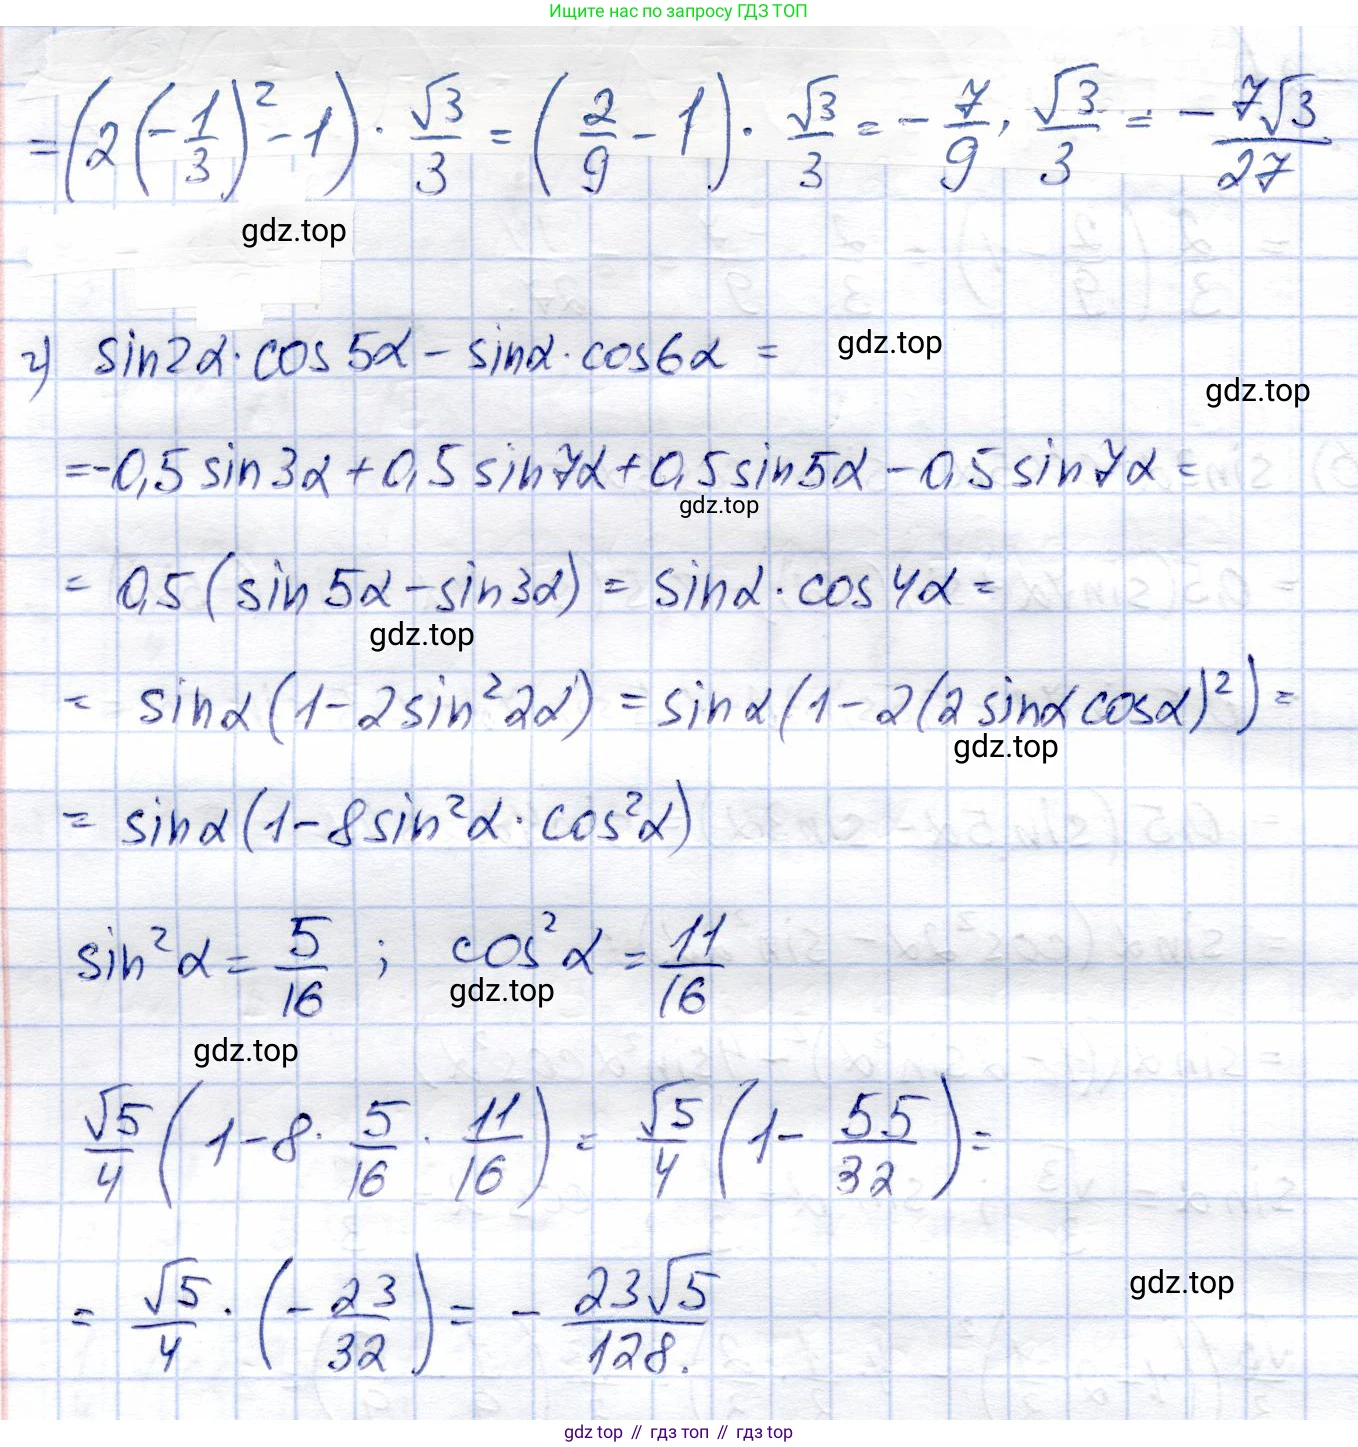 Ищите нас по запросу ГДЗ ТОП
= (2(-1/3)² - 1) · √3/3 = (2/9 - 1) · √3/3 = -7/9 · √3/3 = -7√3/27
gdz.top
г) sin2α · cos5α - sinα · cos6α =
gdz.top
gdz.top
= -0,5 sin3α + 0,5 sin7α + 0,5 sin5α - 0,5 sin7α =
gdz.top
= 0,5 (sin5α - sin3α) = sinα · cos4α =
gdz.top
= sinα (1 - 2sin²2α) = sinα (1 - 2(2 sinα cosα)²) =
gdz.top
= sinα (1 - 8sin²α · cos²α)
sin²α = 5/16 ; cos²α = 11/16
gdz.top
gdz.top
√5/4 (1 - 8 · 5/16 · 11/16) = √5/4 (1 - 55/32) =
gdz.top
= √5/4 · (-23/32) = - 23√5/128.
gdz top // гдз топ // гдз top